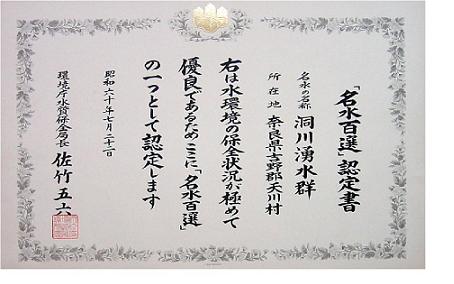 「名水百選」認定書
名水の名称 洞川湧水群
所在地 奈良県吉野郡天川村
右は水環境の保全状況が極めて
優良であるためここに「名水百選」
の一つとして認定します
昭和六十年七月二十二日
環境庁水質保全局長 佐竹五六